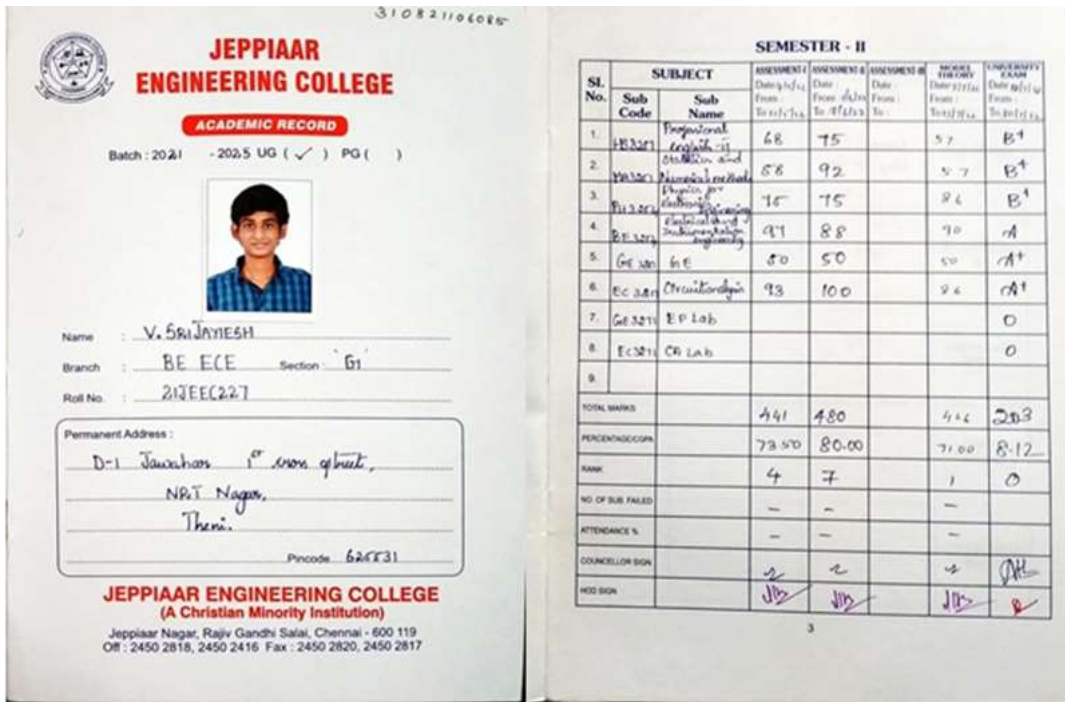 310821106085
JEPPIAAR
ENGINEERING COLLEGE
ACADEMIC RECORD
Batch : 2021 - 2025 UG ( ✓ ) PG ( )
Name : V. SRIJAYIESH
Branch : BE ECE Section : 'G1'
Roll No. : 21JEEC227
Permanent Address :
D-1 Jawahar 1st cross street,
NRT Nagar,
Theni.
Pincode 625531
JEPPIAAR ENGINEERING COLLEGE
(A Christian Minority Institution)
Jeppiaar Nagar, Rajiv Gandhi Salai, Chennai - 600 119
Off : 2450 2818, 2450 2416 Fax : 2450 2820, 2450 2817
SEMESTER - II
Sl. No. SUBJECT Sub Code Sub Name ASSESSMENT-I ASSESSMENT-II ASSESSMENT-III MODEL THEORY UNIVERSITY EXAM
Date : From : To :
1. HS3251 Professional english -ii 68 75 57 B+
2. MA3251 Statistics and Numerical methods 92 57 B+
3. Physics for Engineering 75 75 86 B+
4. BE Electrical and Instrumentation Engineering 88 90 A
5. GE GE 50 50 50 A+
6. EC Circuit analysis 93 100 86 A+
7. EP Lab O
8. CA Lab O
9.
TOTAL MARKS 441 480 203
PERCENTAGE/CGPA 73.50 80.00 71.00 8.12
RANK 4 7 1 0
NO. OF SUB. FAILED - - -
ATTENDANCE % - - -
COUNCELLOR SIGN
HOD SIGN
3